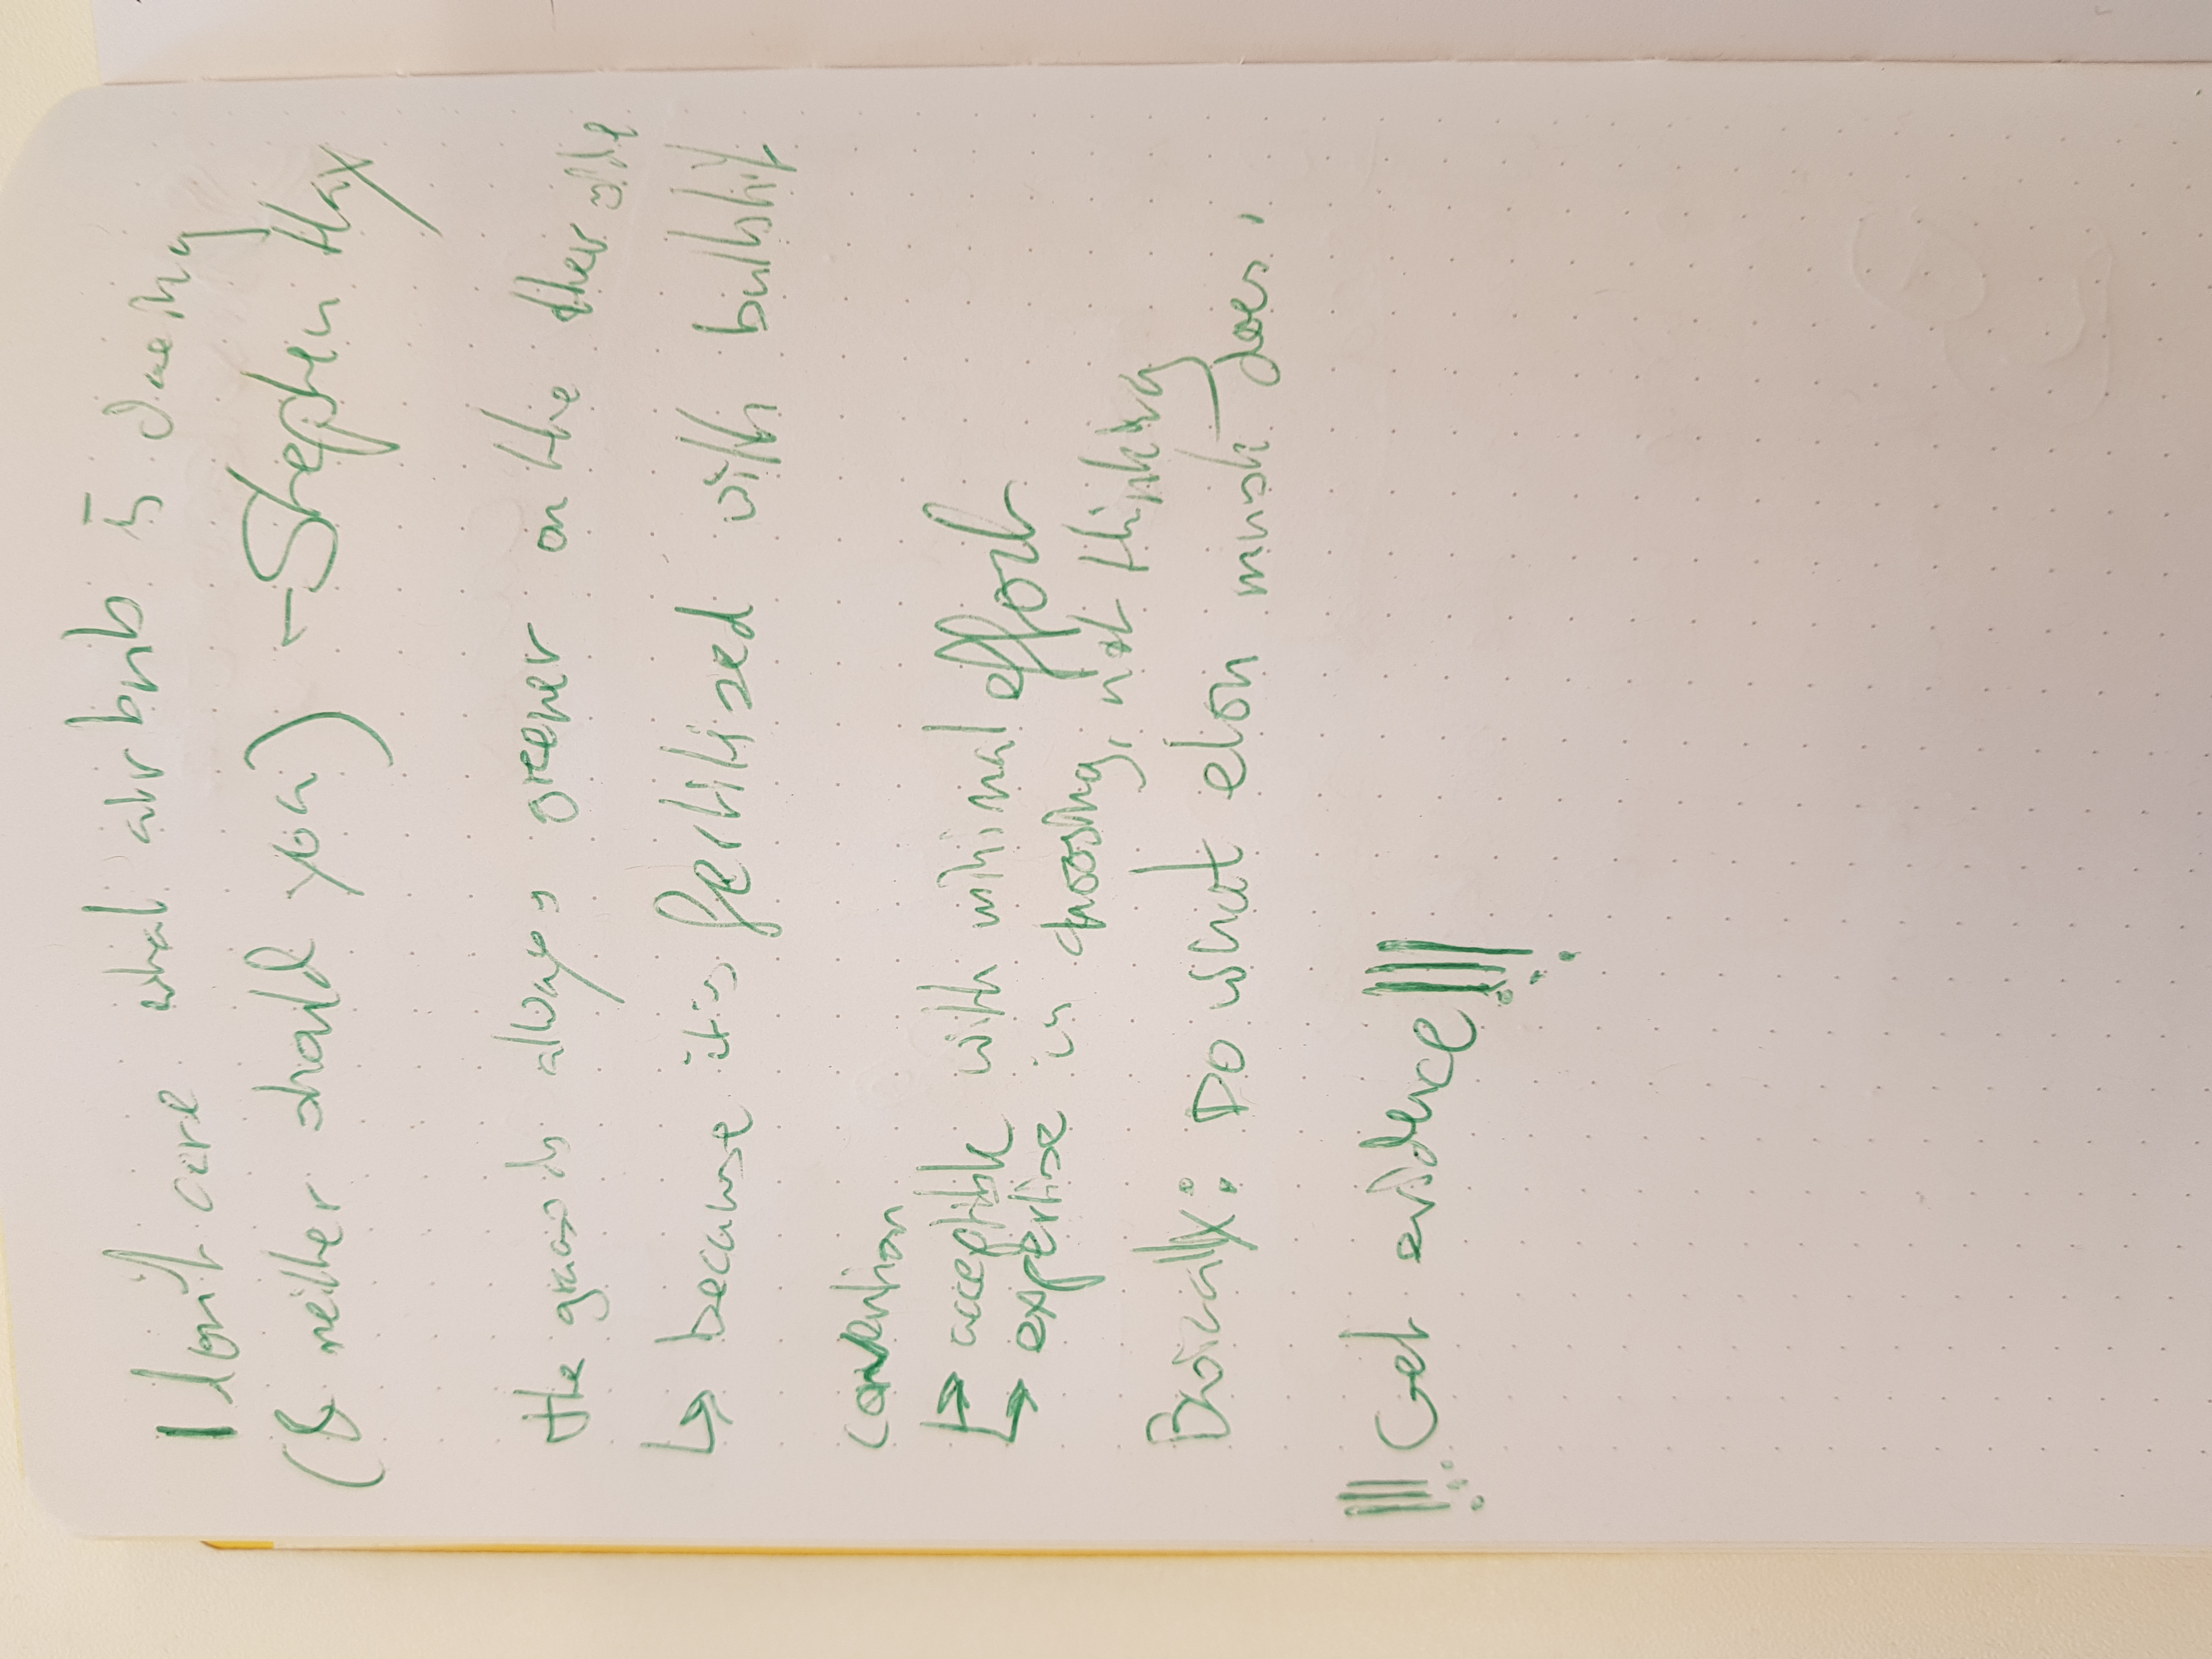 I don't care what airbnb is doeing
(& neither should you) - Stephen Hay
the grass is always greener on the ther side
↳ because it is fertilised with bullshit
convention
↳ acceptible with minimal effort
↳ expertise in choosing, not thinking
Basically: Do what elon musk does.
!!! Get evidence!!!